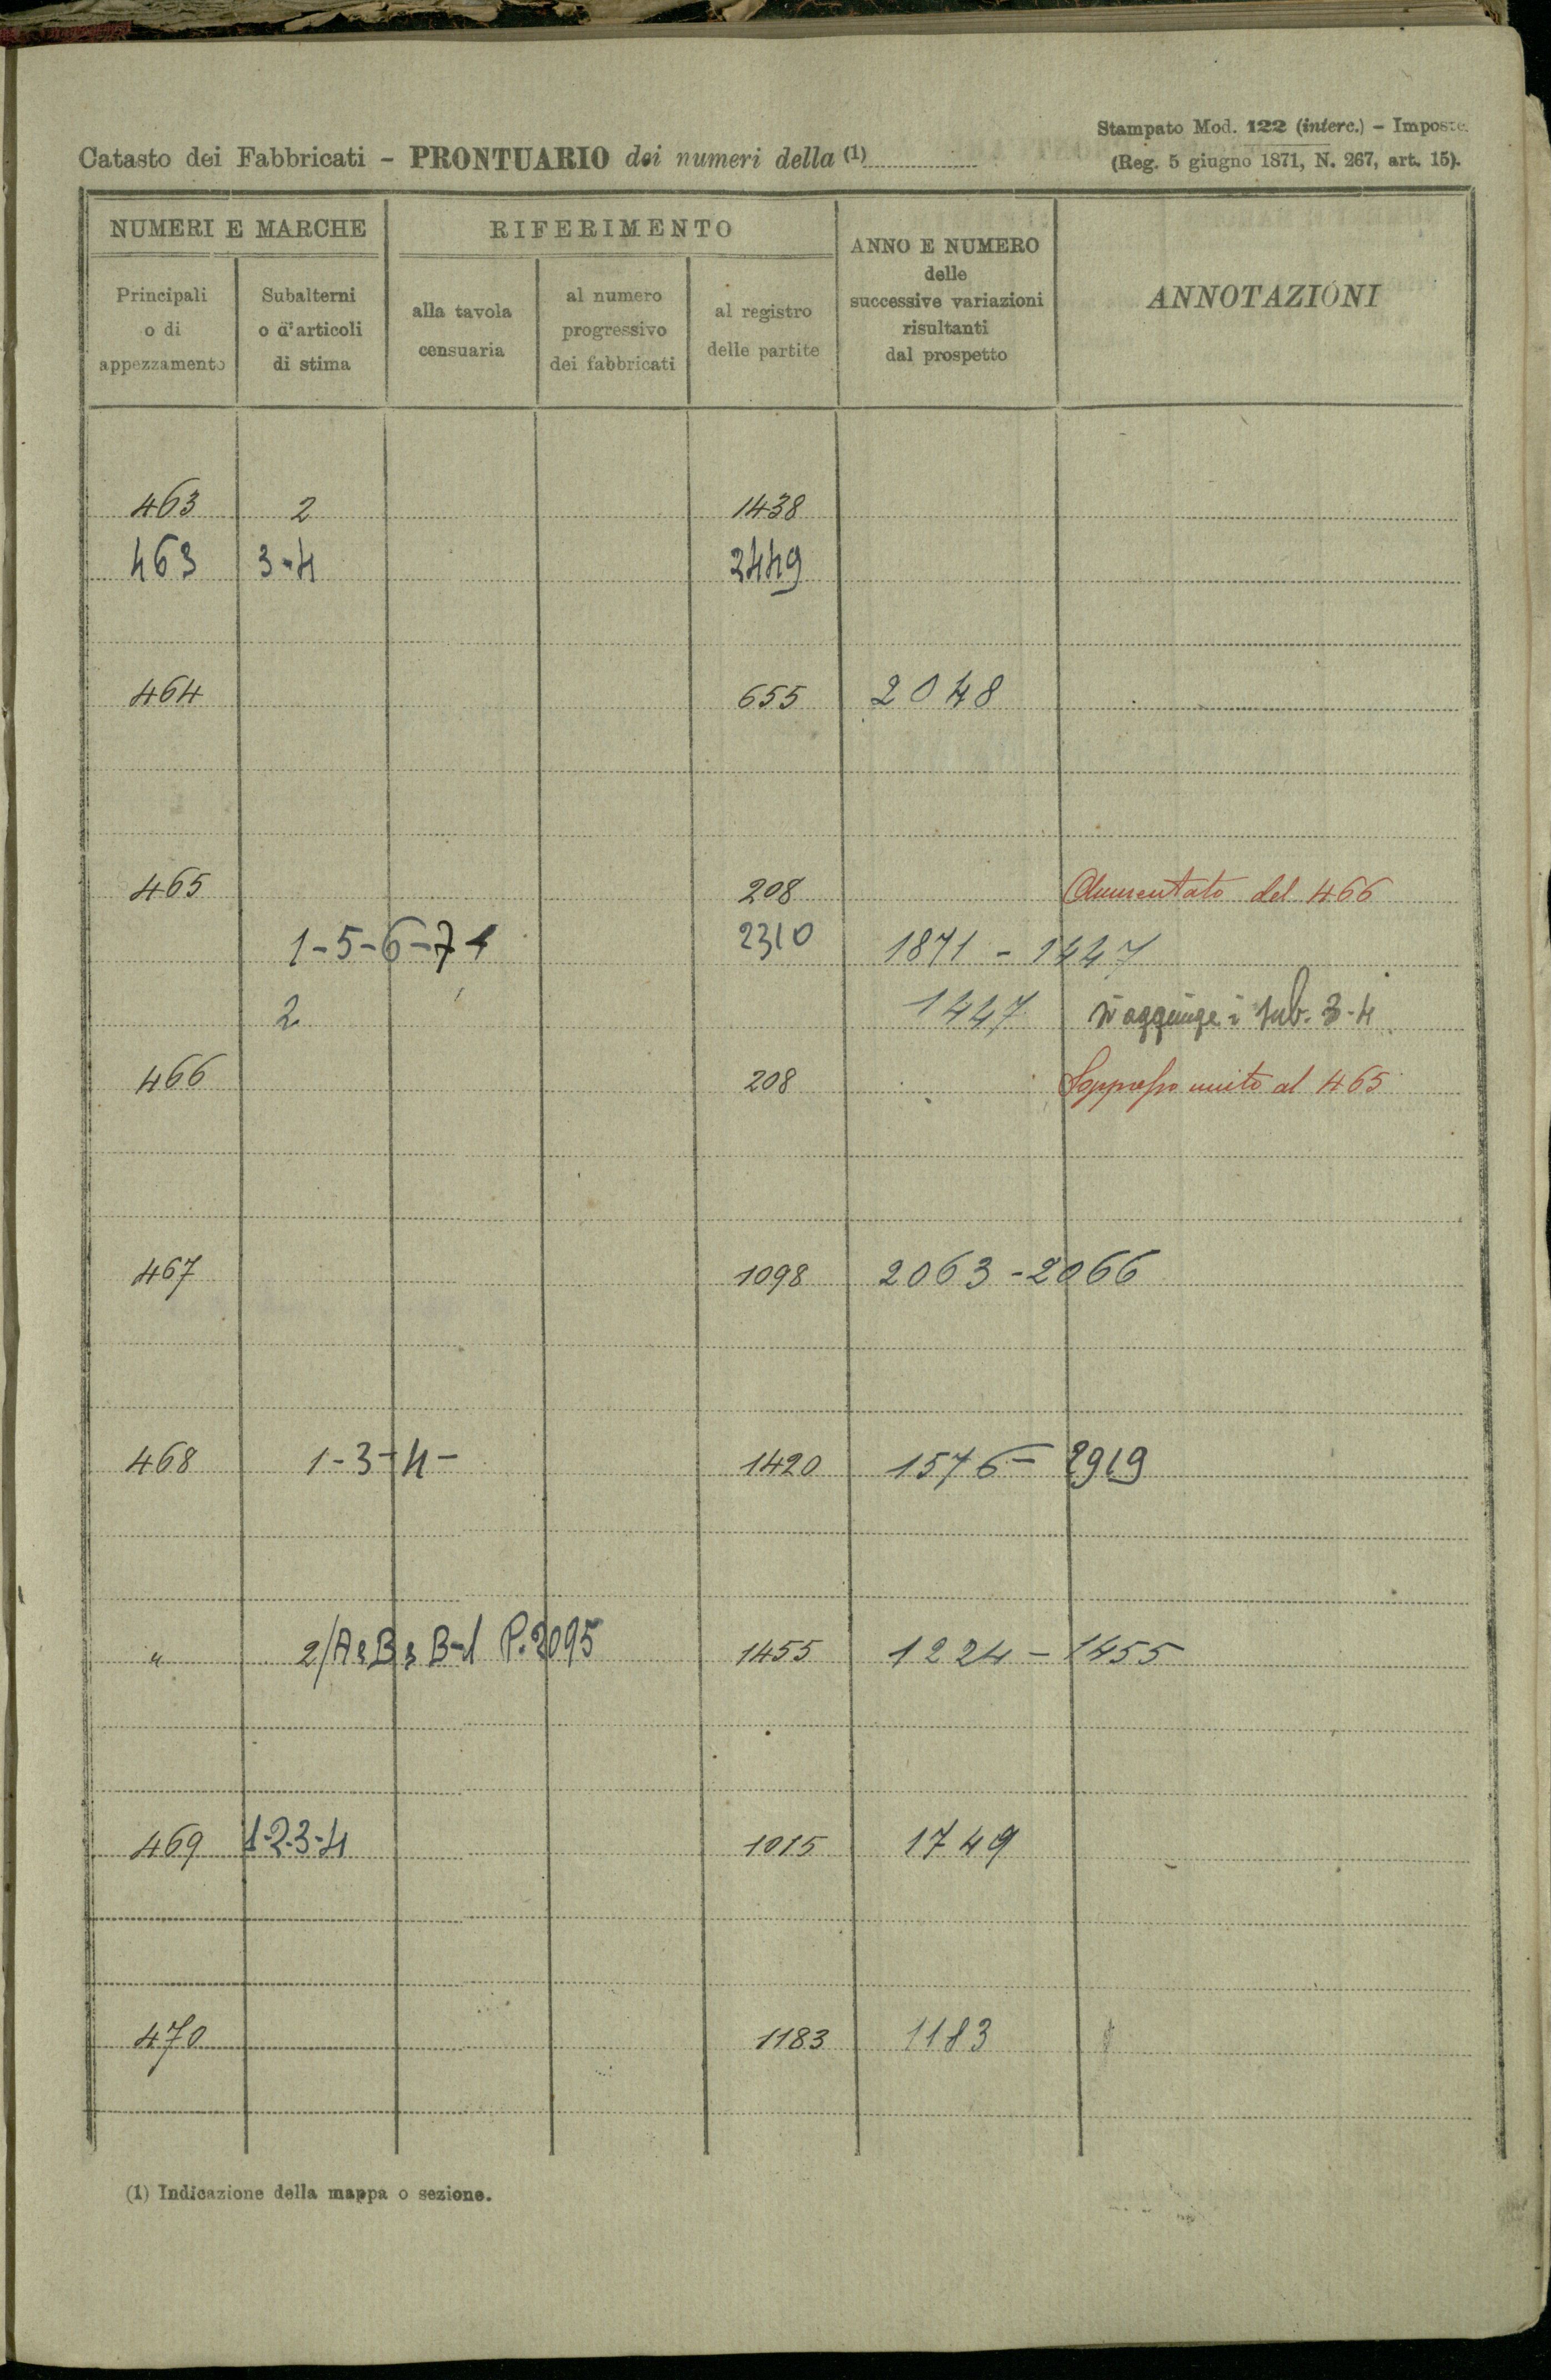 Stampato Mod. 122 (interc.) - Imposte.
(Reg. 5 giugno 1871, N. 267, art. 15).
Catasto dei Fabbricati - PRONTUARIO dei numeri della (1)
NUMERI E MARCHE
RIFERIMENTO
ANNO E NUMERO
delle
successive variazioni
risultanti
dal prospetto
ANNOTAZIONI
Principali
o di
appezzamento
Subalterni
o d'articoli
di stima
alla tavola
censuaria
al numero
progressivo
dei fabbricati
al registro
delle partite
463 2 1438
463 3-4 2449
464 655 2048
465 208 Aumentato del 466
1-5-6-7 2310 1871 - 1447
2 1447 si aggiunge i sub. 3-4
466 208 Soppresso unito al 465
467 1098 2063-2066
468 1-3-4- 1420 1576- 2919
" 2/A e B P. 2095 1455 1224 - 1455
469 1-2-3-4 1015 1749
470 1183 1183
(1) Indicazione della mappa o sezione.